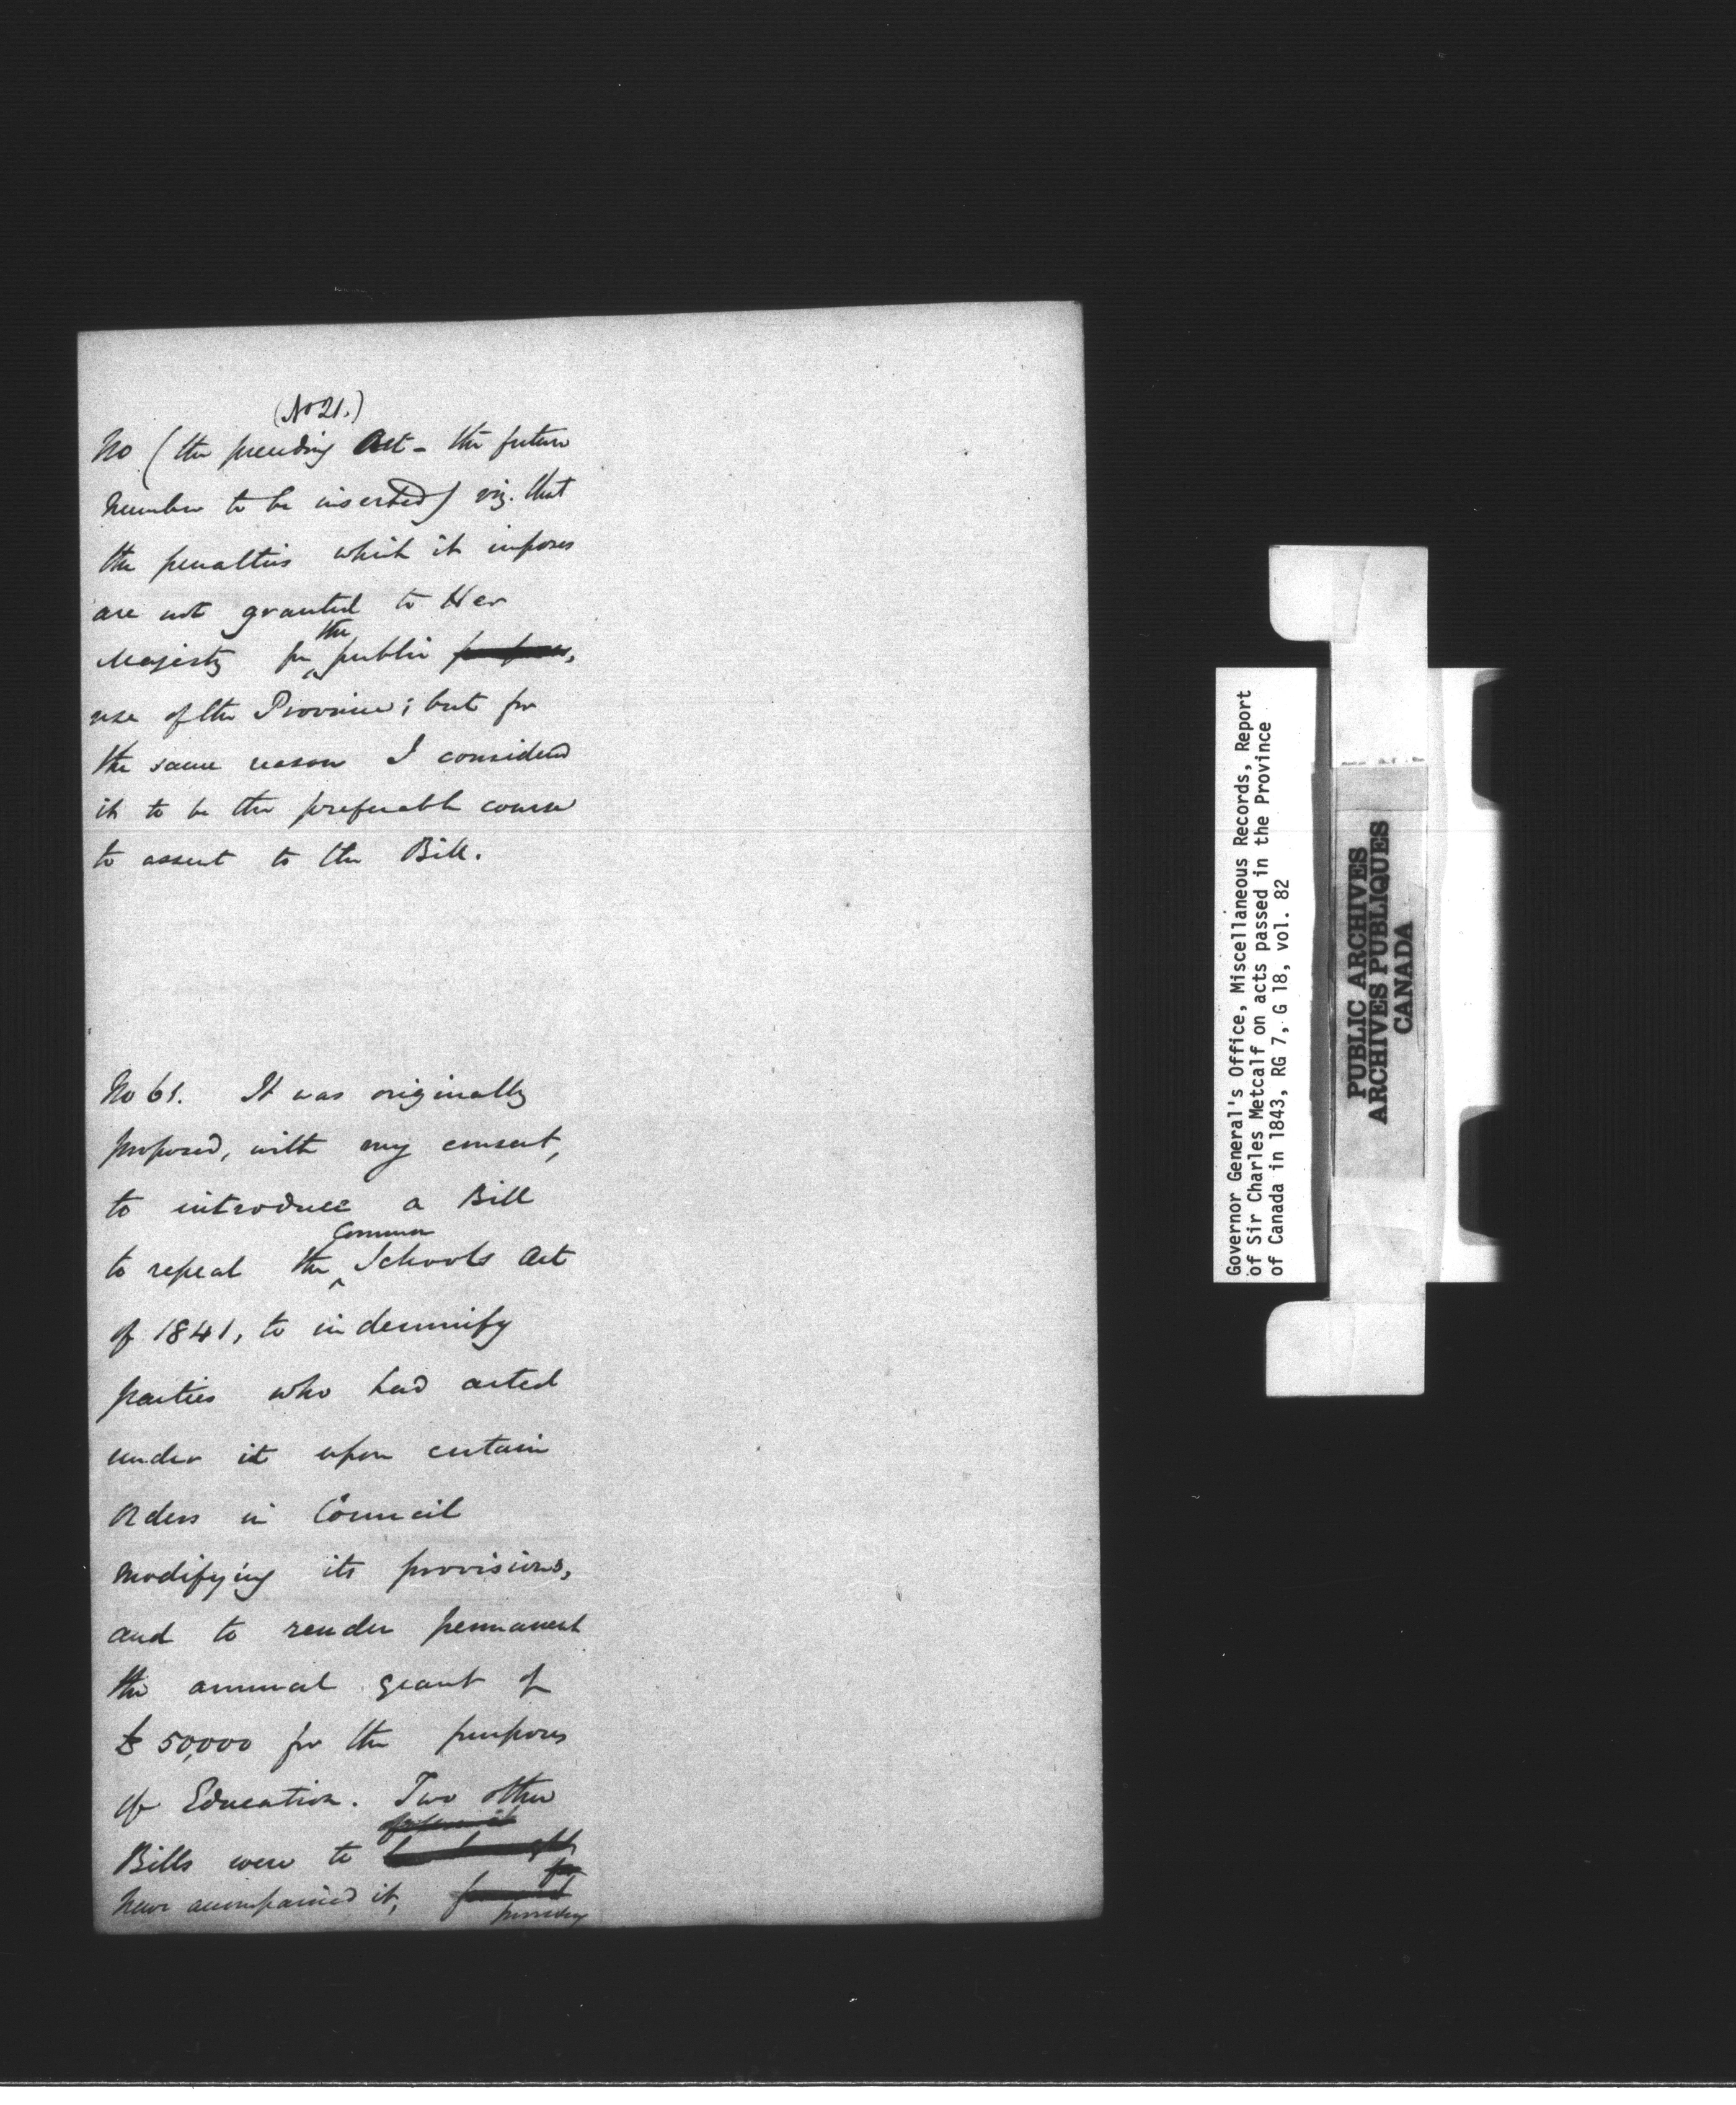 (No 21.)
No (the preceding Act - the future
number to be inserted) viz. that
the penalties which it imposes
are not granted to Her
the
Majesty for public purposes,
use of the Province; but for
the same reason I considered
it to be the preferable course
to assent to the Bill.
No 61. It was originally
proposed, with my consent,
to introduce a Bill
Common
to repeal the Schools Act
of 1841, to indemnify
parties who had acted
under it upon certain
Orders in Council
modifying its provisions,
and to render permanent
the annual grant of
£50,000 for the purposes
of Education. Two other
Bills were to
for
have accompanied it,
Governor General's Office, Miscellaneous Records, Report
of Sir Charles Metcalf on acts passed in the Province
of Canada in 1843, RG 7, G 18, vol. 82
PUBLIC ARCHIVES
ARCHIVES PUBLIQUES
CANADA